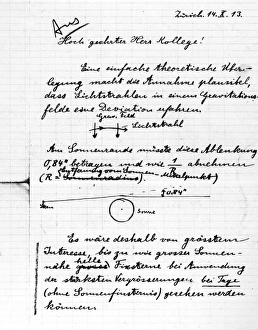 Zürich. 14. X. 13.
Hoch geehrter Herr Kollege!
Eine einfache theoretische Über-
legung macht die Annahme plausibel,
dass Lichtstrahlen in einem Gravitations-
felde eine Deviation erfahren.
Grav. Feld
Lichtstrahl
Am Sonnenrande müsste diese Ablenkung
0,84" betragen und wie 1/R abnehmen
(R = Sonnenradius) Entfernung vom Sonnen-Mittelpunkt
0.84"
Stern
Sonne
Es wäre deshalb von grösstem
Interesse, bis zu wie grosser Sonnen-
nähe grosse helle Fixsterne bei Anwendung
der stärksten Vergrösserungen bei Tage
(ohne Sonnenfinsternis) gesehen werden
können.